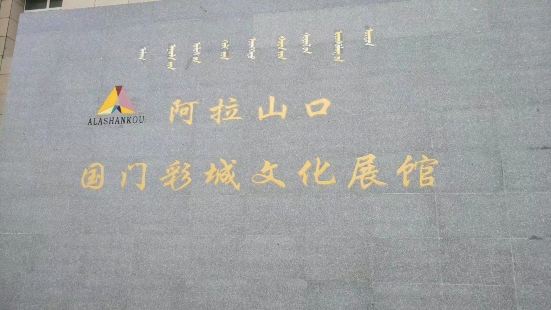 ALASHANKOU
阿拉山口
国门彩城文化展馆